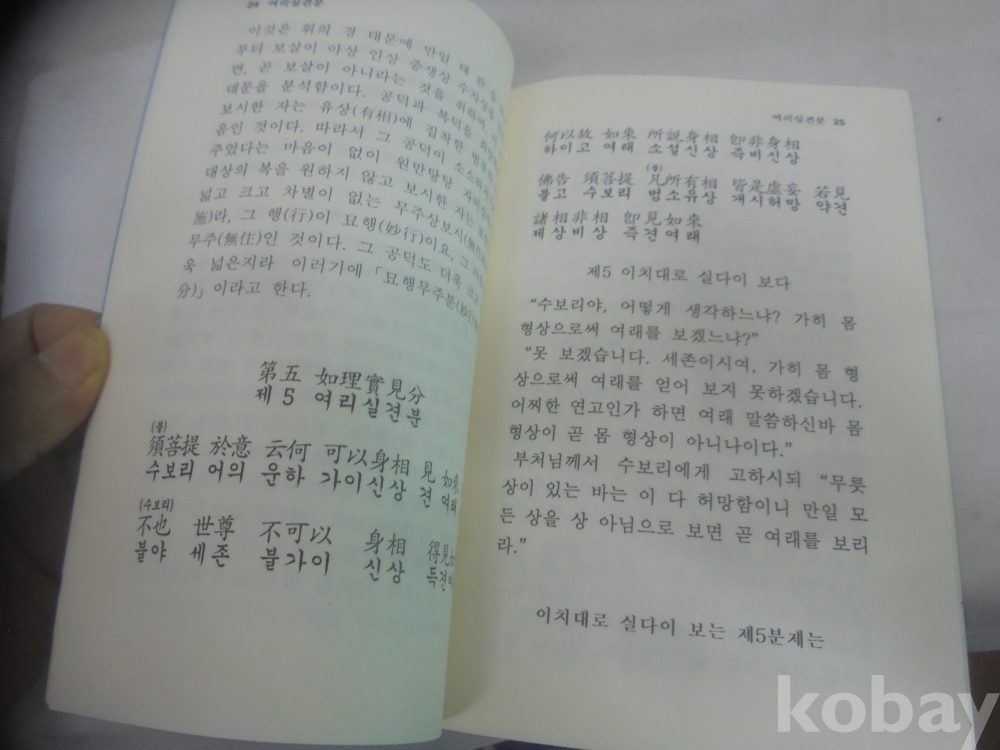 24 여리실견분
이것은 위의 경 대문에 만일 태 란 습
부터 보살이 아상 인상 중생상 수자상
면, 곧 보살이 아니라는 것을 취하여,
대문을 분석함이다. 공덕과 복덕을
보시한 자는 유상(有相)에 집착한
음인 것이다. 따라서 그 공덕이 소소하
주었다는 마음이 없이 원만탕탕
대상의 복을 원하지 않고 보시한 자는
넓고 크고 차별이 없는 무주상보시(無住
施)라, 그 행(行)이 묘행(妙行)이요, 그
무주(無住)인 것이다. 그 공덕도 더욱 크고
욱 넓은지라 이러기에 「묘행무주분(妙行無
分)」이라고 한다.
第五 如理實見分
제 5 여리실견분
(총)
須菩提 於意 云何 可以身相 見 如來
수보리 어의 운하 가이신상 견 여래
(수보리)
不也 世尊 不可以 身相 得見如
불야 세존 불가이 신상 득견여
여리실견분 25
何以故 如來 所說身相 卽非身相
하이고 여래 소설신상 즉비신상
佛告 須菩提 凡所有相 皆是虛妄 若見
불고 수보리 범소유상 개시허망 약견
諸相非相 卽見如來
제상비상 즉견여래
제5 이치대로 실다이 보다
“수보리야, 어떻게 생각하느냐? 가히 몸
형상으로써 여래를 보겠느냐?”
“못 보겠습니다. 세존이시여, 가히 몸 형
상으로써 여래를 얻어 보지 못하겠습니다.
어찌한 연고인가 하면 여래 말씀하신바 몸
형상이 곧 몸 형상이 아니나이다.”
부처님께서 수보리에게 고하시되 “무릇
상이 있는 바는 이 다 허망함이니 만일 모
든 상을 상 아님으로 보면 곧 여래를 보리
라.”
이치대로 실다이 보는 제5분제는
kobay